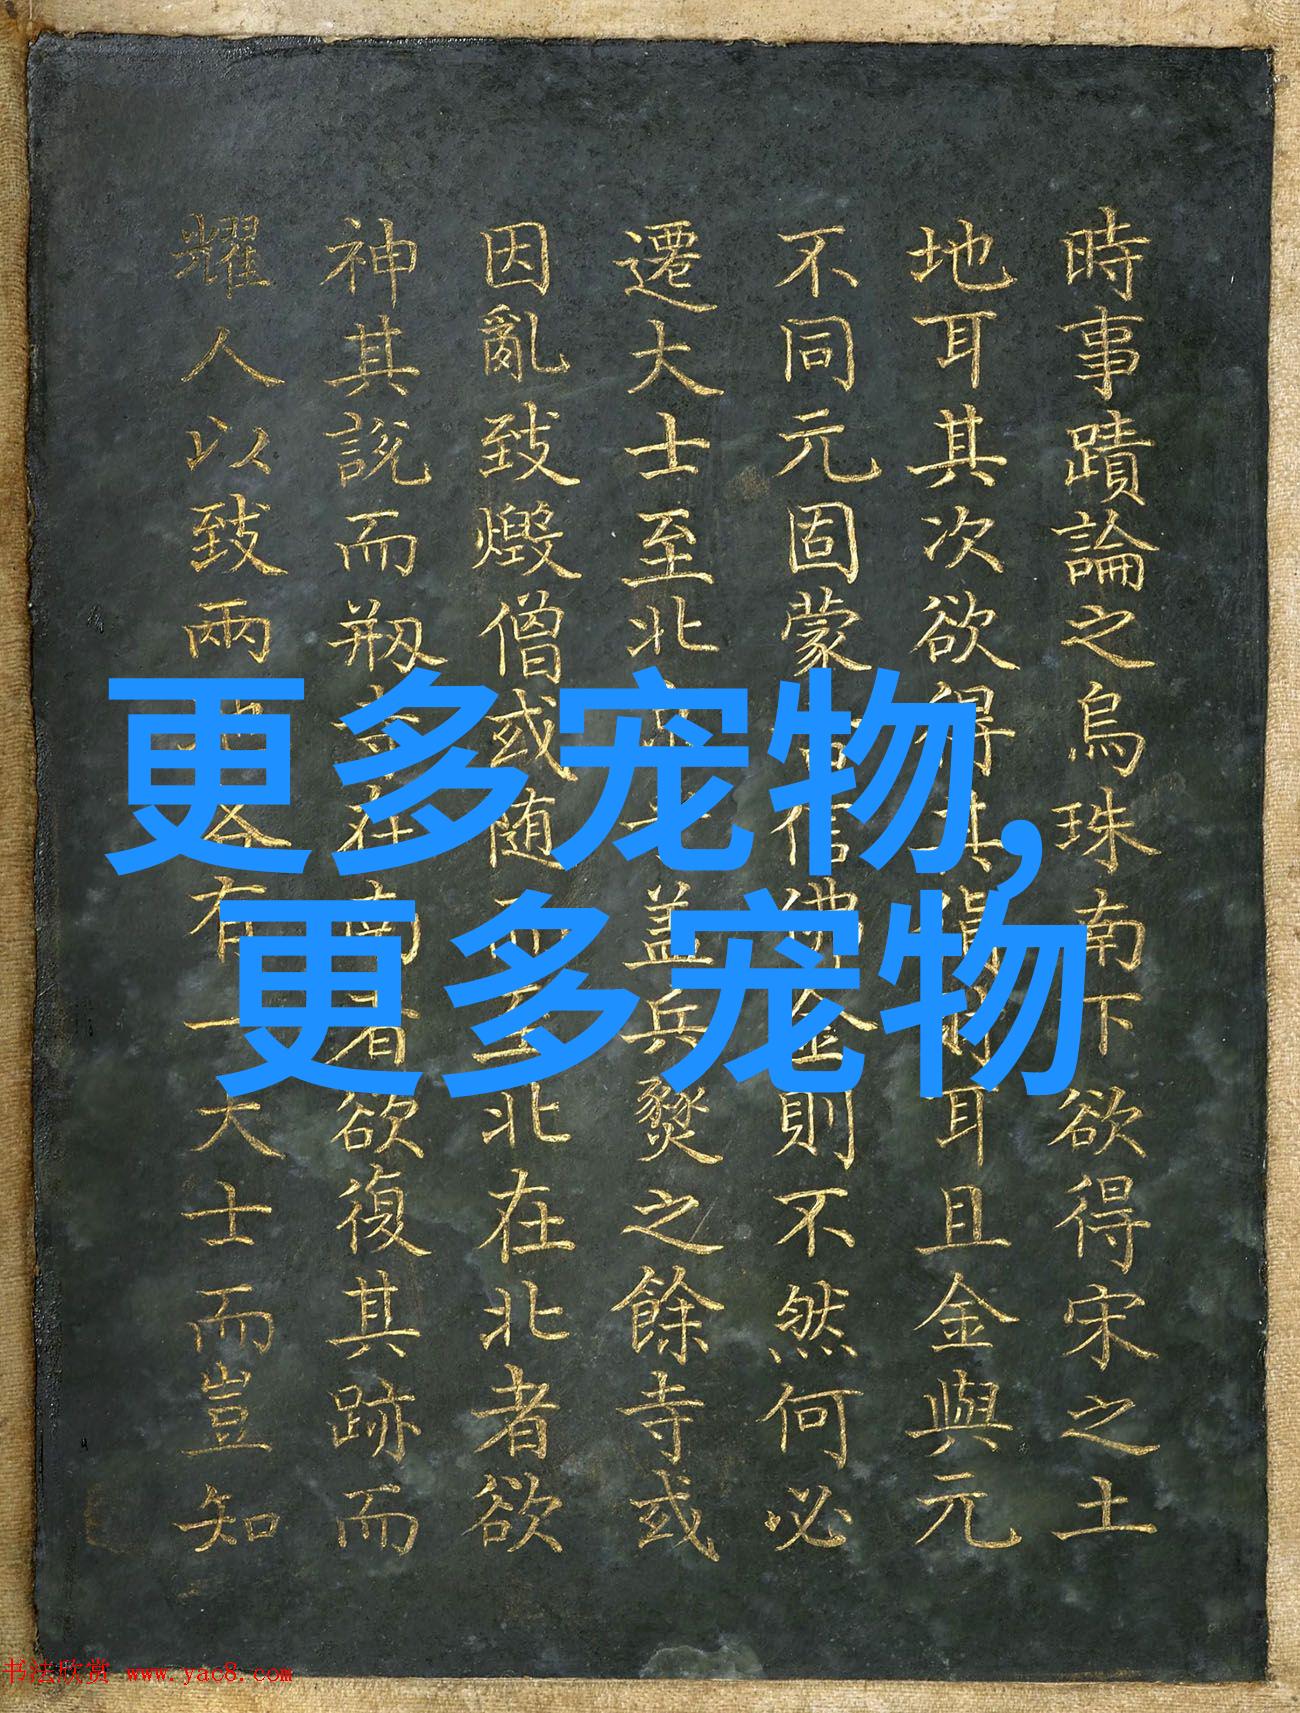 時事蹟論之烏珠南下欲得宋之土
地耳其次欲得其財耳且金與元
不同元固蒙古信佛金則不然何必
遷大士至北盖兵燹之餘寺或
因亂致燬僧或随而至北在北者欲
神其說而刱在南者欲復其跡而
耀人以致兩地各有一大士而豈知
更多宠物,
更多宠物
书法欣赏 www.yac8.com